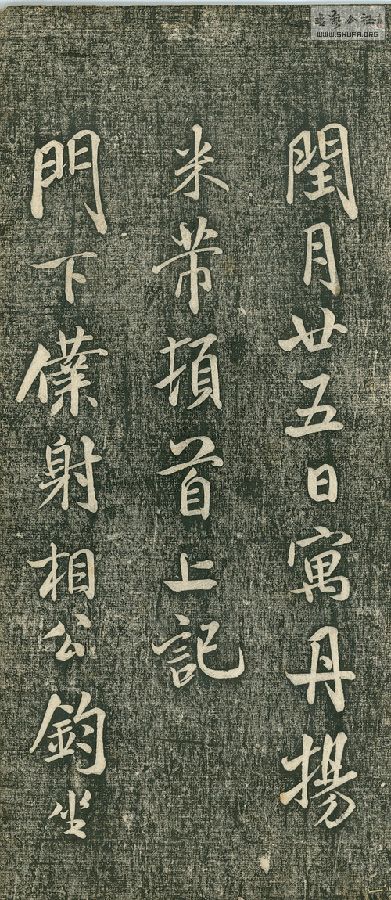 閏月廿五日寓丹揚
米芾頓首上記
門下僕射相公鈞坐
WWW.SHUFA.ORG